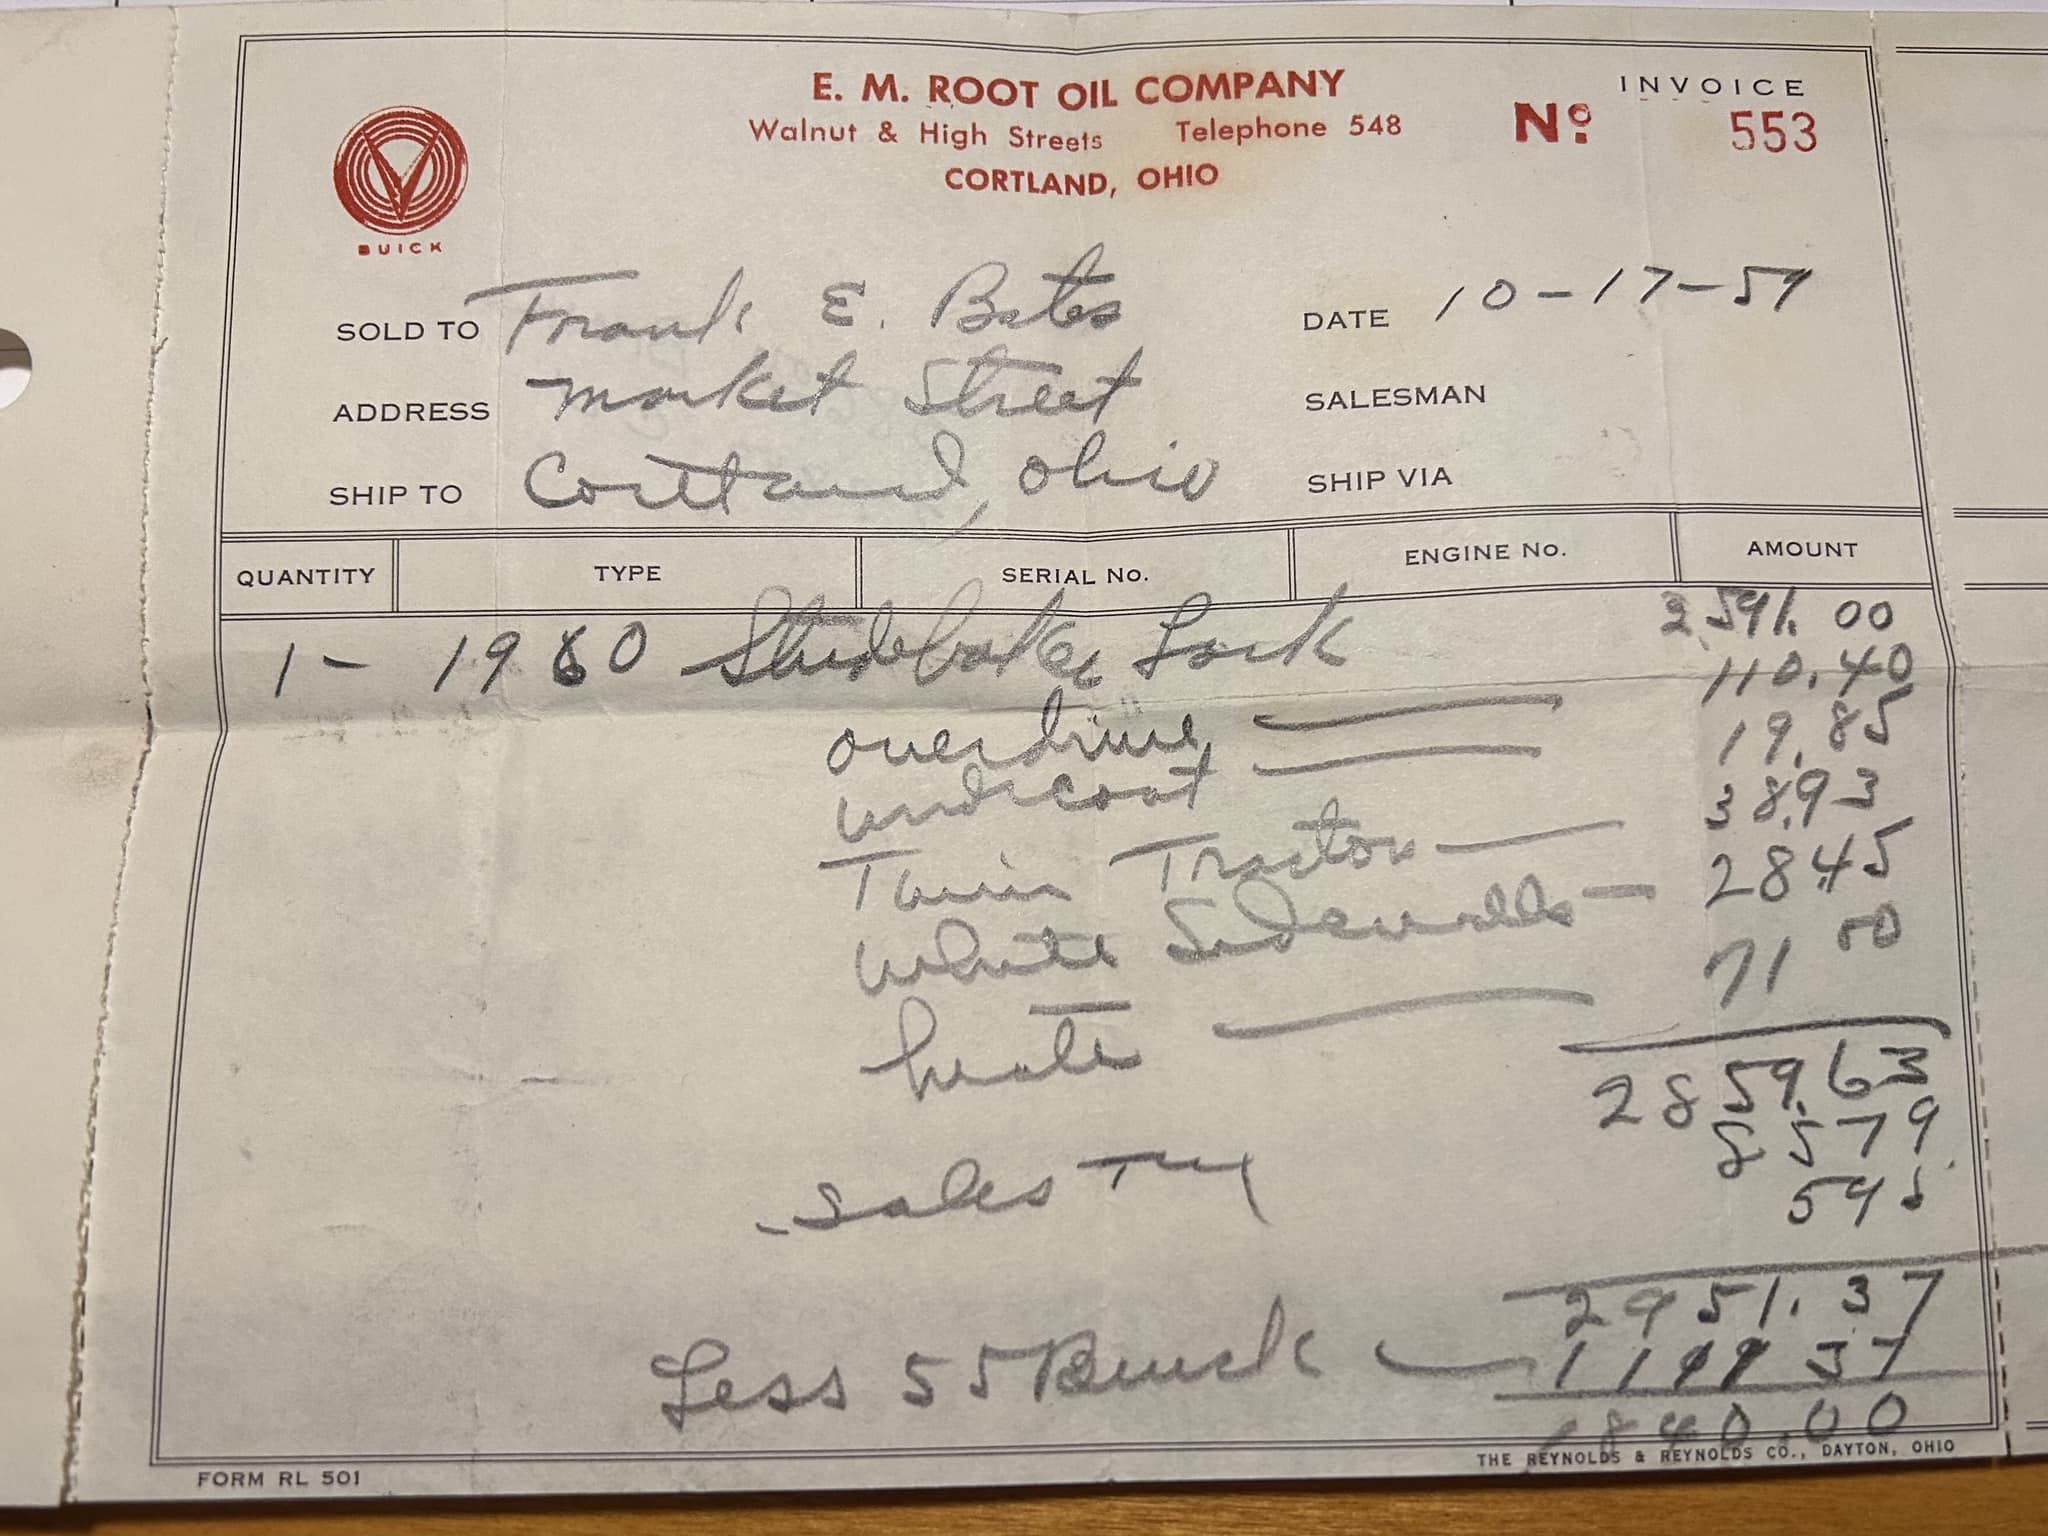 E. M. ROOT OIL COMPANY
Walnut & High Streets Telephone 548
CORTLAND, OHIO
INVOICE
Nº 553
BUICK
SOLD TO Frank E. Bates
DATE 10-17-59
ADDRESS Market Street
SALESMAN
SHIP TO Cortland, Ohio
SHIP VIA
QUANTITY TYPE SERIAL No. ENGINE No. AMOUNT
1 - 1960 Studebaker Lark 2591.00
overdrive 110.40
undercoat 19.85
Twin Traction 38.93
White Sidewalls 28.45
heater 71 00
2859.63
Sales Tax 85 79
5 95
2951.37
Less 55 Buick 37
1840.00
THE REYNOLDS & REYNOLDS CO., DAYTON, OHIO
FORM RL 501